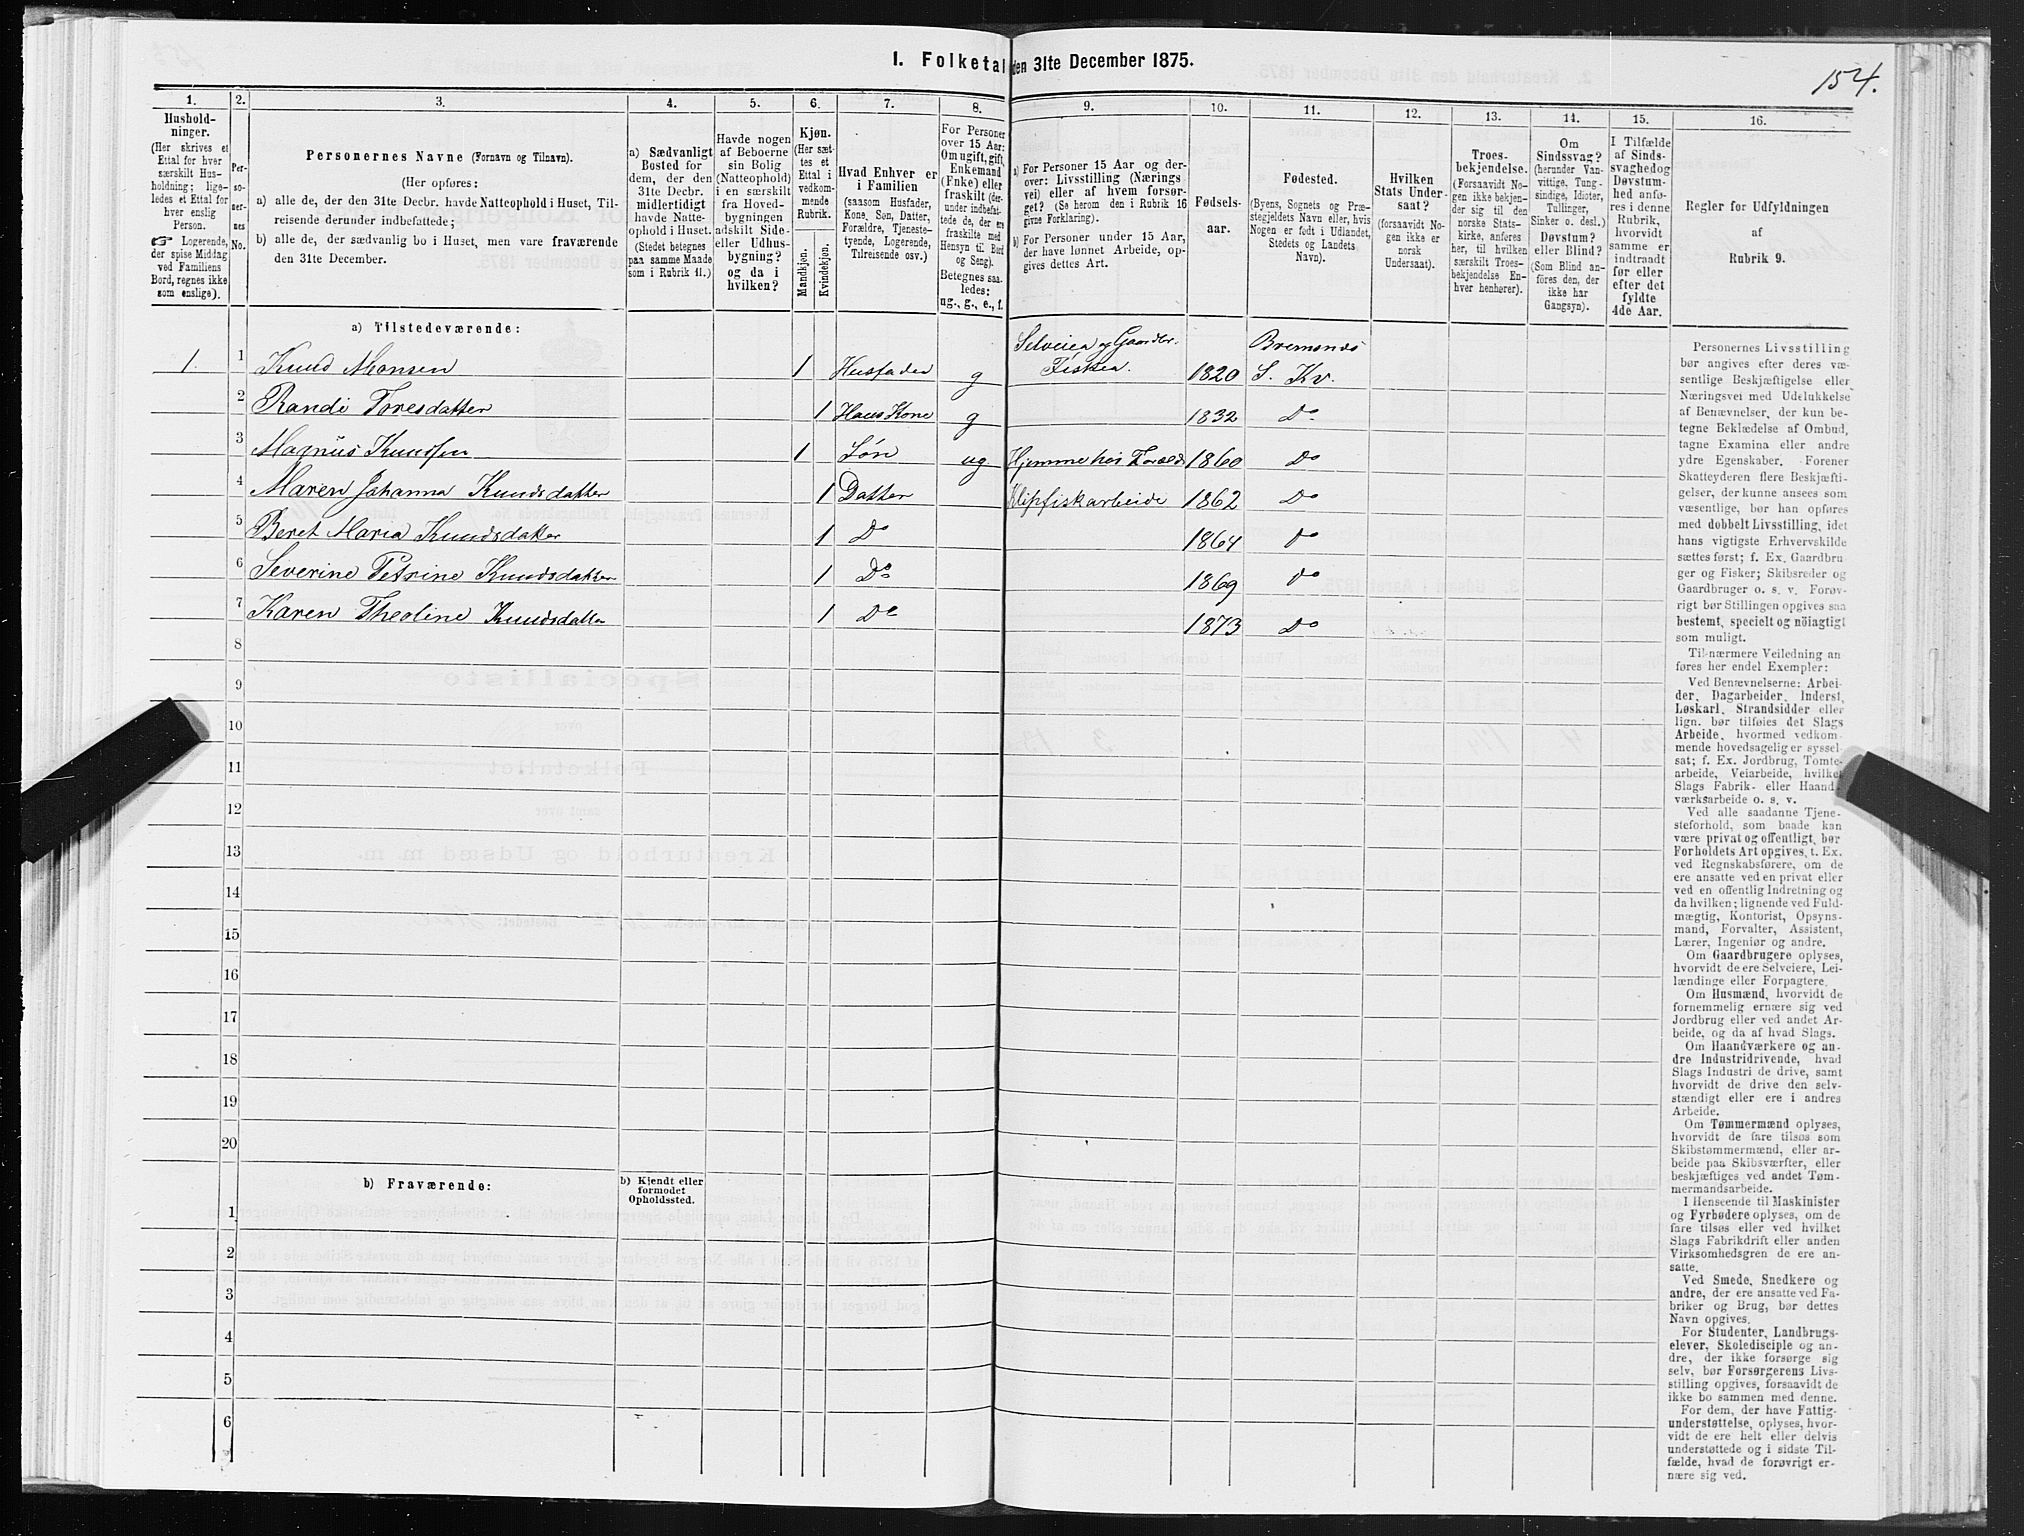 1. Folketal den 31te December 1875.
154.
1.
2.
3.
4.
5.
6.
7.
8.
9.
10.
11.
12.
13.
14.
15.
16.
Hushold-
ninger.
(Her skrives et
Ettal for hver
særskilt Hus-
holdning; lige-
ledes et Ettal for
hver enslig
Person.
☞ Logerende,
der spise Middag
ved Familiens
Bord, regnes ikke
som enslige).
Per-
so-
ner-
nes
No.
Personernes Navne (Fornavn og Tilnavn).
(Her opføres:
a) alle de, der den 31te Decbr. havde Natteophold i Huset, Til-
reisende derunder indbefattede;
b) alle de, der sædvanlig bo i Huset, men vare fraværende
den 31te December.
a) Sædvanligt
Bosted for
dem, der den
31te Decbr.
midlertidigt
havde Natte-
ophold i Huset.
(Stedet betegnes
paa samme Maade
som i Rubrik 11.)
Havde nogen
af Beboerne
sin Bolig
(Natteophold)
i en særskilt
fra Hoved-
bygningen
adskilt Side-
eller Udhus-
bygning?
og da i
hvilken?
Kjøn.
(Her sæt-
tes et
Ettal i
vedkom-
mende
Rubrik.
Mandkjøn.
Kvindekjøn.
Hvad Enhver er
i Familien
(saasom Husfader,
Kone, Søn, Datter,
Forældre, Tjeneste-
tyende, Logerende,
Tilreisende osv.)
For Personer
over 15 Aar:
Om ugift, gift,
Enkemand
(Enke) eller
fraskilt (der-
under indbefat-
tede de, der ere
fraskilte med
Hensyn til Bord
og Seng).
Betegnes saa-
ledes:
ug., g., e., f.
a) For Personer 15 Aar og der-
over: Livsstilling (Nærings
vei) eller af hvem forsør-
get? (Se herom den i Rubrik 16
givne Forklaring).
b) For Personer under 15 Aar,
der have lønnet Arbeide, op-
gives dettes Art.
Fødsels-
aar.
Fødested.
(Byens, Sognets og Præ-
stegjeldets Navn eller, hvis
Nogen er født i Udlandet,
Stedets og Landets
Navn).
Hvilken
Stats Under-
saat?
(forsaavidt No-
gen ikke er
norsk
Undersaat).
Troes-
bekjendelse.
(Forsaavidt No-
gen ikke bekjen-
der sig til den
norske Stats-
kirke, anføres
her, til hvilken
særskilt Troes-
bekjendelse En-
hver henhører).
Om
Sindssvag?
(herunder Van-
vittige, Tung-
sindige, Idioter,
Tullinger,
Sinker o. desl.)
Døvstum?
eller Blind?
(Som Blind an-
føres den, der
ikke har
Gangsyn).
I Tilfælde
af Sinds-
svaghed og
Døvstum-
hed anfø-
res i denne
Rubrik,
hvorvidt
samme er
indtraadt
før eller
efter det
fyldte
4de Aar.
Regler for Udfyldningen
af
Rubrik 9.
a) Tilstedeværende:
1 1 Knud Monsen 1 Husfader g Selveier og Gaardbr. Fisker. 1820 Bremsnes S. Kv.
2 Randi Toresdatter 1 Haus Kone g 1832 Do
3 Magnus Knudsen 1 Søn ug Hjemme hos Foræld 1860 Do
4 Maren Johanna Knudsdatter 1 Datter Klipfiskarbeide 1862 Do
5 Beret Maria Knudsdatter 1 Do 1864 Do
6 Severine Petrine Knudsdatter 1 Do 1869 Do
7 Karen Theoline Knudsdatter 1 Do 1873 Do
8
9
10
11
12
13
14
15
16
17
18
19
20
b) Fraværende:
b) Kjendt eller
formodet
Opholdssted.
1
2
3
4
5
6
Personernes Livsstilling
bør angives efter deres væ-
sentlige Beskjæftigelse eller
Næringsvei med Udelukkelse
af Benævnelser, der kun be-
tegne Beklædelse af Ombud,
tagne Examina eller andre
ydre Egenskaber. Forener
Skatteyderen flere Beskjæfti-
gelser, der kunne ansees som
væsentlige, bør han opføres
med dobbelt Livsstilling, idet
hans vigtigste Erhvervskilde
sættes først; f. Ex. Gaardbru-
ger og Fisker; Skibsreder og
Gaardbruger o. s. v. Forøv-
rigt bør Stillingen opgives saa
bestemt, specielt og nöiagtigt
som muligt.
Til nærmere Veiledning an
føres her endel Exempler:
Ved Benævnelserne: Arbei-
der, Dagarbeider, Inderst,
Løskarl, Strandsidder eller
lign. bør tilføies det Slags
Arbeide, hvormed vedkom-
mende hovedsagelig er syssel-
sat; f. Ex. Jordbrug, Tomte-
arbeide, Veiarbeide, hvilket
Slags Fabrik- eller Haand-
værksarbeide o. s. v.
Ved alle saadanne Tjene-
steforhold, som baade kan
være privat og offentligt, bør
Forholdets Art opgives, t. Ex.
ved Regnskabsførere, om de
ere ansatte ved en privat eller
ved en offentlig Indretning og
da hvilken; lignende ved Fuld-
mægtig, Kontorist, Opsyns-
mand, Forvalter, Assistent,
Lærer, Ingeniør og andre.
Om Gaardbrugere oplyses,
hvorvidt de ere Selveiere, Lei-
lændinge eller Forpagtere.
Om Husmænd, hvorvidt de
fornemmelig ernære sig ved
Jordbrug eller ved andet Ar-
beide, og da af hvad Slags.
Om Haandværkere og an-
dre Industridrivende, hvad
Slags Industri de drive, samt
hvorvidt de drive den selv-
stændigt eller ere i andres
Arbeide.
Om Tømmermænd oplyses,
hvorvidt de fare tilsøs som
Skibstømmermænd, eller ar-
beide paa Skibsværfter, eller
beskjæftiges ved andet Tøm-
mermandsarbeide.
I Henseende til Maskinister
og Fyrbødere oplyses, om de
fare tilsøs eller ved hvilket
Slags Fabrikdrift eller anden
Virksomhedsgren de ere an-
satte.
Ved Smede, Snedkere og
andre, der ere ansatte ved Fa-
briker og Brug, bør dettes
Navn opgives.
For Studenter, Landbrugs-
elever, Skoledisciple og an-
dre, der ikke forsørge sig
selv, bør Forsørgerens Livs-
stilling opgives, forsaavidt de
ikke bo sammen med denne.
For dem, der have Fattig-
understøttelse, oplyses, hvor-
vidt de ere helt eller delvis
understøttede og i sidste Til-
fælde, hvad de forøvrigt er-
nære sig ved.